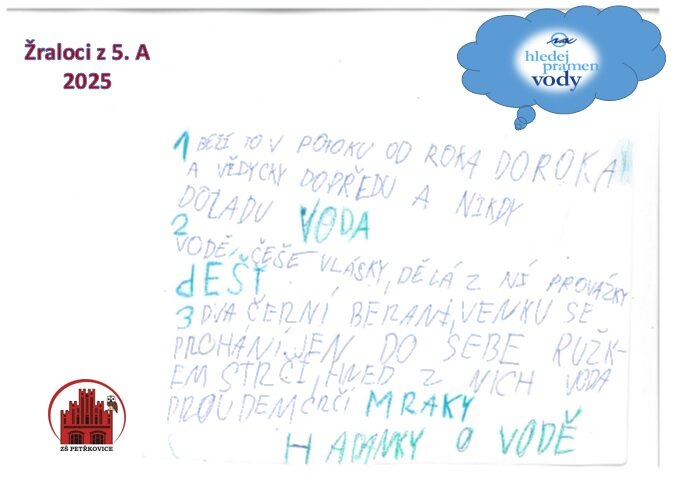 Žraloci z 5. A
2025
hledej
pramen
vody
1 BĚŽÍ TO V POTOKU OD ROKA DOROKA
A VŽDYCKY DOPŘEDU A NIKDY
DOZADU VODA
2
VODĚ ČEŠE VLÁSKY, DĚLÁ Z NÍ PROVÁZKY
dEŠŤ
3 DVA ČERNÍ BERANI, VENKU SE
PROHÁNÍ. JEN DO SEBE RŮŽK-
EM STRČÍ, HNED Z NICH VODA
PROUDEMČRČÍ MRAKY
HADANKY O VODĚ
ZŠ PETŘKOVICE